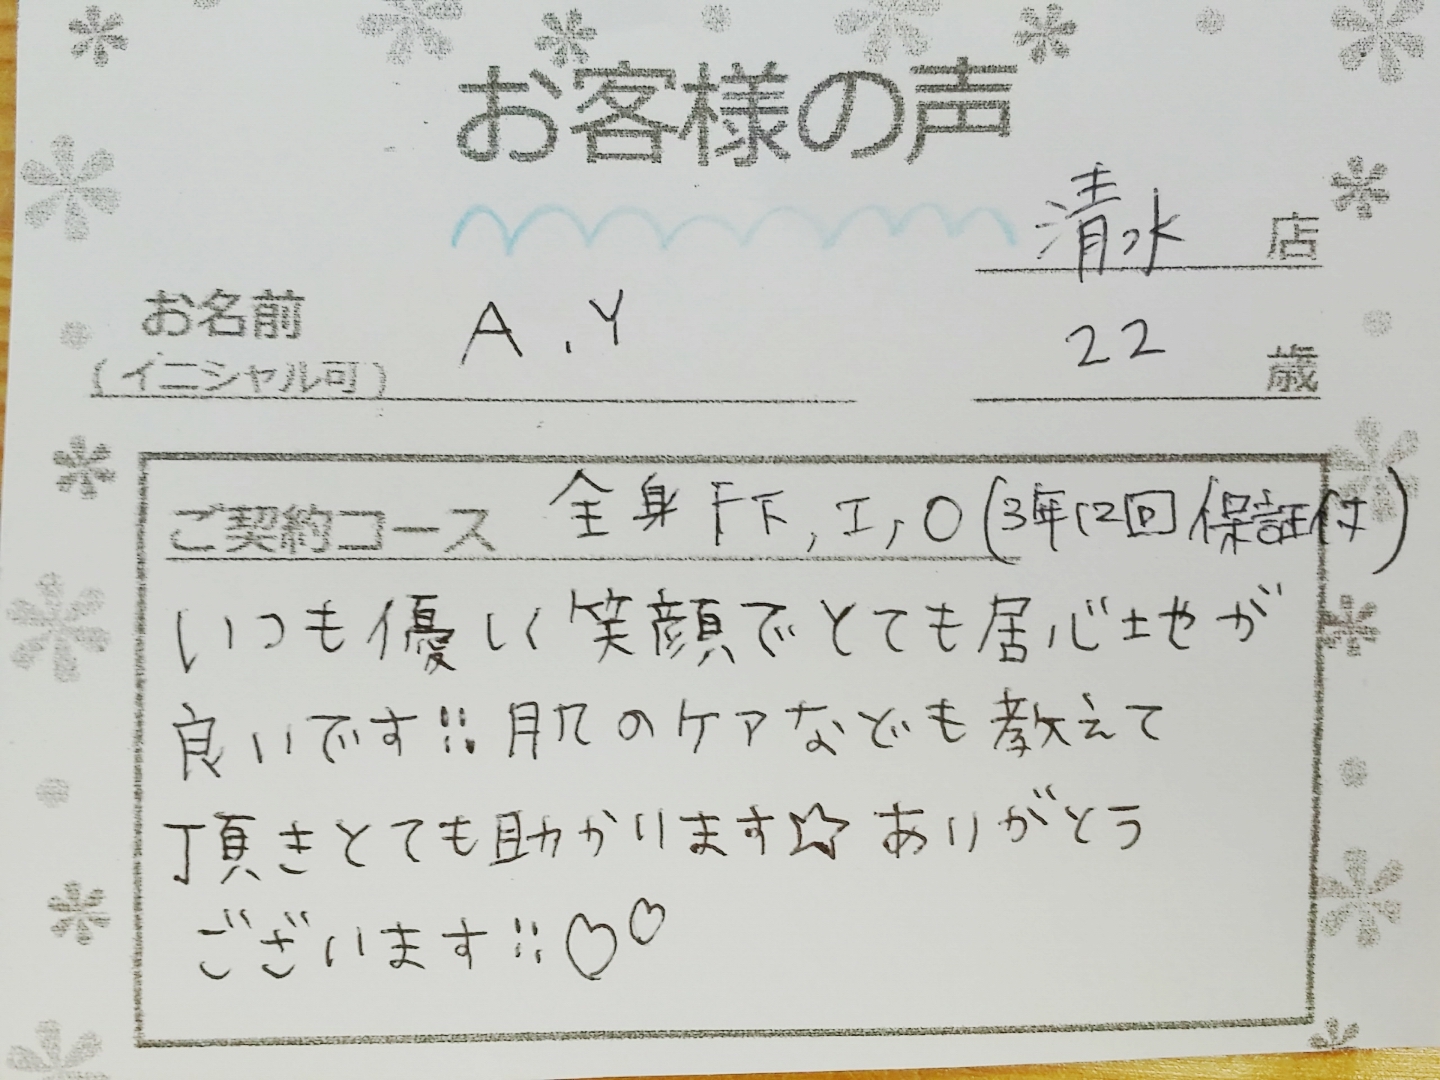 お客様の声
清水 店
お名前 A.Y 22 歳
(イニシャル可)
ご契約コース 全身 F下, I, O (3年12回保証付)
いつも優しく笑顔でとても居心地が
良いです!! 肌のケアなども教えて
頂きとても助かります☆ ありがとう
ございます!!♡♡